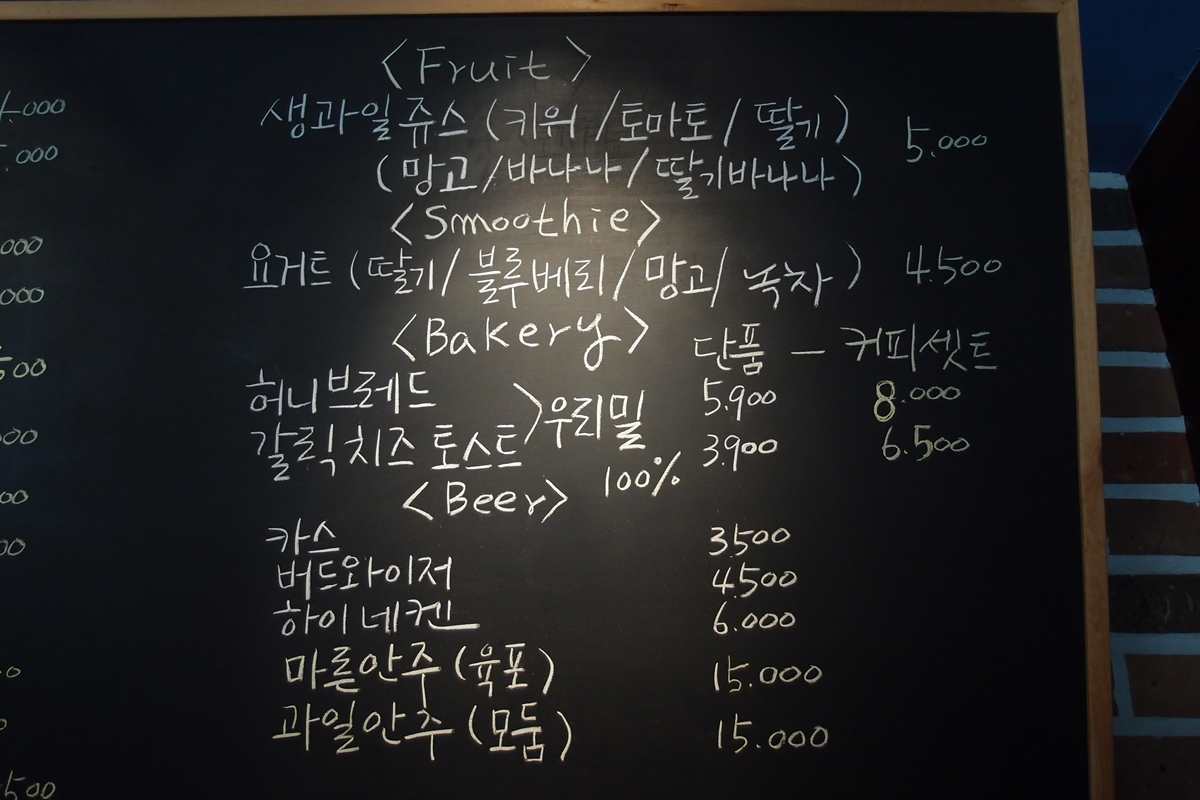 <Fruit>
생과일쥬스 (키위 / 토마토 / 딸기) 5.000
(망고 / 바나나 / 딸기바나나)
<Smoothie>
요거트 (딸기 / 블루베리 / 망고 / 녹차) 4.500
<Bakery>
단품 - 커피셋트
허니브레드 5.900 8.000
갈릭치즈 토스트 > 우리밀 3.900 6.500
100%
<Beer>
카스 3500
버드와이저 4500
하이네켄 6.000
마른안주 (육포) 15.000
과일안주 (모둠) 15.000